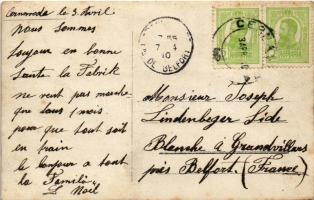 Cernavoda le 3 Avril
nous sommes
toujour en bonne
Sante la Fabrik
ne veut pas marche
que dans 1 mois
pour que tout soit
en train
le bonjour a tout
ta Famille
L Noël
7 4
10
DE BELFORT
CER
Monsieur Joseph
Lindenbeger Side
Blanche à Grandvillars
près Belfort. (France)